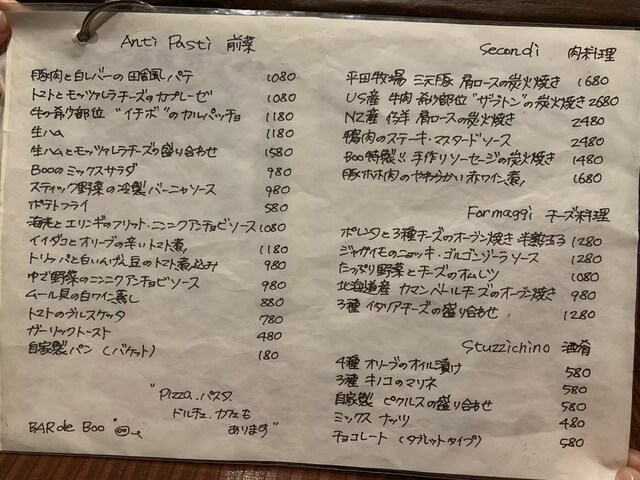 Anti Pasti 前菜
豚肉と白レバーの田舎風パテ 1080
トマトとモッツァレラチーズのカプレーゼ 1080
牛の希少部位 "イチボ"のカルパッチョ 1180
生ハム 1180
生ハムとモッツァレラチーズの盛り合わせ 1580
Booのミックスサラダ 980
スティック野菜の冷製バーニャソース 980
ポテトフライ 580
海老とエリンギのフリット・ニンニクアンチョビソース 1080
イイダコとオリーブの辛いトマト煮 1180
トリッパと白いんげん豆のトマト煮込み 980
ゆで野菜のニンニクアンチョビソース 980
ムール貝の白ワイン蒸し 880
トマトのブルスケッタ 780
ガーリックトースト 480
自家製パン (バケット) 180
"Pizza、パスタ、
ドルチェ、カフェも
あります"
BAR de Boo
Secondi 肉料理
平田牧場 三元豚 肩ロースの炭火焼き 1680
US産 牛肉 希少部位"ザブトン"の炭火焼き 2680
NZ産 仔羊 肩ロースの炭火焼き 2480
鴨肉のステーキ・マスタードソース 2480
Boo特製!! 手作りソーセージの炭火焼き 1480
豚ホホ肉のやわらかい赤ワイン煮 1680
Formaggi チーズ料理
ポレンタと3種チーズのオーブン焼き 半熟玉子 1280
ジャガイモのニョッキ・ゴルゴンゾーラソース 1280
たっぷり野菜とチーズのオムレツ 1080
北海道産 カマンベールチーズのオーブン焼き 980
3種 イタリアチーズの盛り合わせ 1280
Stuzzichino 酒肴
4種 オリーブのオイル漬け 580
3種 キノコのマリネ 580
自家製 ピクルスの盛り合わせ 580
ミックス ナッツ 480
チョコレート (タブレットタイプ) 580